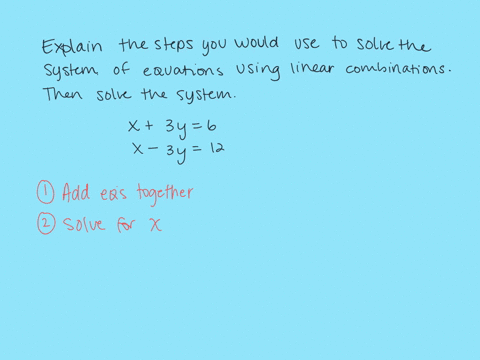 Explain the steps you would use to solve the
system of equations using linear combinations.
Then solve the system.
x + 3y = 6
x - 3y = 12
① Add eqs together
② Solve for x